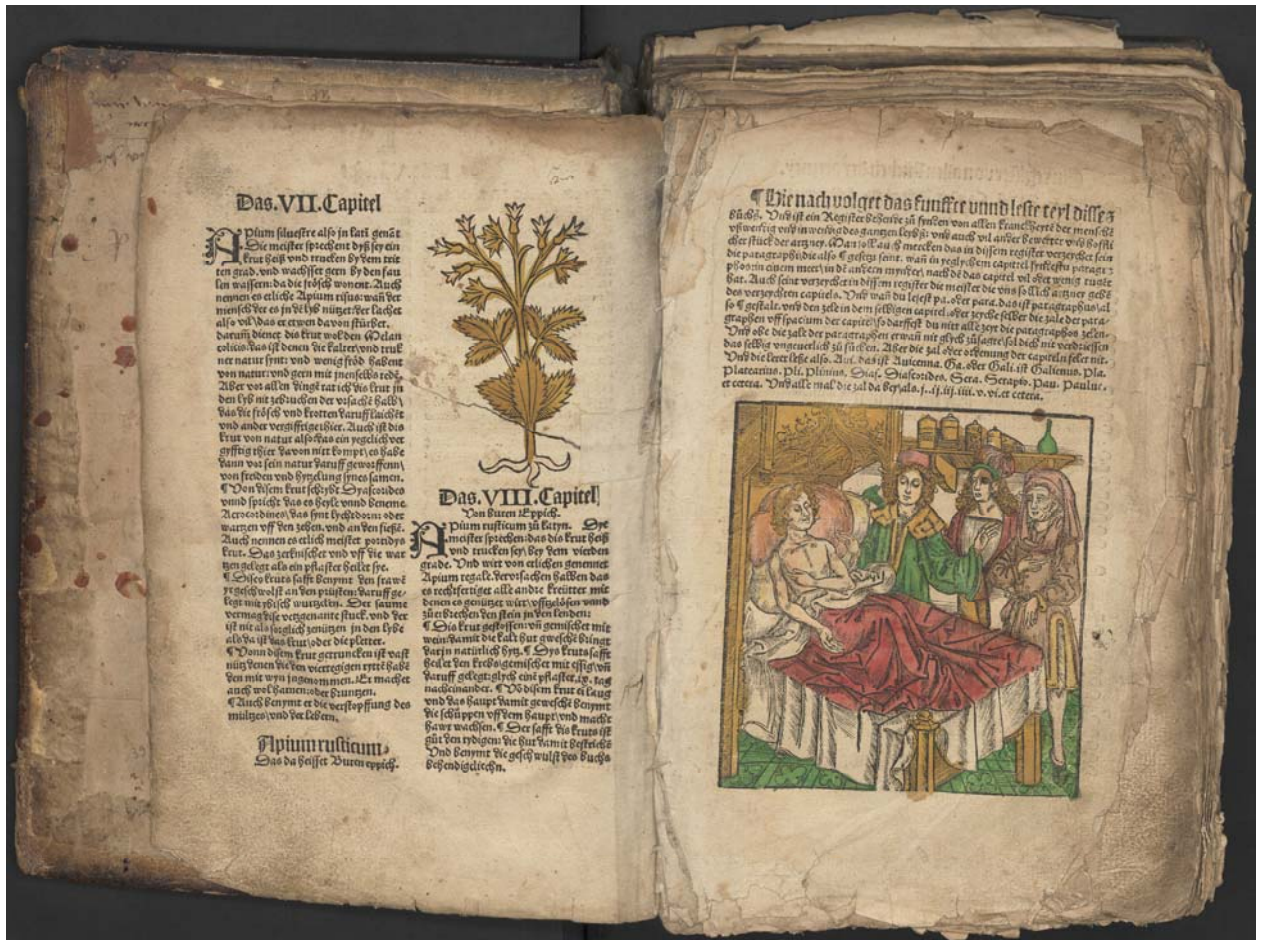 Das.VII.Capitel
Apium siluestre also in latī genāt
Die meister sprechent dyß sey ein
krut heiß vnd trucken by dem trit
ten grad. vnd wachsset gern by den fau
len wassern: da die frösch wonent. Auch
nennen es etliche Apium risus: wañ der
mensch der es jn dē lyb nützet: der lachet
also vil\das er etwen davon stürbet.
darum̄ dienet dis krut wol den Melan
colicis. das ist denen die kalter\vnd truk
ner natur synt: vnd wenig fröd habent
von natur: vnd gern mit jnen selbs redē.
Aber vor allen dingē rat ich dis krut jn
den lyb nit zebruchen der vrsache halb\
das die frösch vnd krotten daruff laichēt
vnd ander vergifftige thier. Auch ist dis
krut von natur also\das ein yegelich ver
gyfftig thier davon nitt kompt\es habe
dann vor sein natur daruff geworffenn\
von freiden vnd hytzelung synes samen.
¶ Von disem krut schrybt Dyascorides
vnnd spricht das es heyle vnnd beneme
Acrocordines\das synt lychtdorn: oder
wartzen vff den zehen. vnd an den fießē.
Auch nennen es etlich meister potridys
krut. Das zerknischet vnd vff die war
tzen gelegt als ein pflaster heilet sye.
¶ Dises kruts safft benymt den frawē
yr geschwolst an den prüsten: daruff ge-
legt mit yrisch wurtzelen. Der saume
vermag dise vetzgenante stuck. vnd der
ist nit als sorglich zenützen jn den lybe
als da ist das krut\oder die pletter.
¶ Vonn disem krut getruncken ist vast
nütz denen die den viertegigen rytte habē
den mit wyn jngenommen. Et machet
auch wol harnen: oder bruntzen.
¶ Auch benymt er die verstopffung des
miltzes\vnd der lebern.
Apium rusticum
Das da heisset Buren eppich.
Das.VIII.Capitel
Von buren Eppich.
Apium rusticum zū latyn. Dye
meister sprechen: das dis krut heiß
vnd trucken sey\bey dem vierden
grade. Vnd wirt von etlichen genennet
Apium regale. der vrsachen halben das
es rechtfertiget alle andre kreütter mit
denen es genützet würt\vffzelösen vnnd
zū erbrechen den stein jn den lenden:
¶ Dis krut gestossen: vñ gemischet mit
wein: damit die kalt hut gewescht bringt
dar jn natürlich hytz. ¶ Dys kruts safft
heilet den krebs\gemischet mit essig\vñ
daruff gelegt: glych einē pflaster. ix. tag
nacheinander. ¶ Vō disem krut ei laug
vnd das haupt damit geweschē benymt
die schüppen vff dem haupt\vnd macht
hawr wachsen. ¶ Der safft dis kruts ist
gūt den rydigen: die hut damit bestrichē
Vnd benymt die geschwulst des buchs
behendigcliechn.
¶ Hie nach volget das funffte vnnd leste teyl disses
būchs. Vnd ist ein Register behende zū fynden von allen kranckheytē der menschē
vßwendig vnd inwendig des gantzen leybs: vnd auch vil ander bewerter vnd höffli
cher stuck der artzney. Man sol auch mercken das in dissem register verzeychet sein
die paragraphi\die also ¶ gesetzt seint. wañ in yeglychem capittel fyndestu paragra
phos in einem meer\in dē andern mynder\nach dē das capitel vil oder wenig tugēt
hat. Auch seint verzeychet in dissem register die meister die vns sollich artzney gebē
des verzeychten capitels. Vnd wañ du lesest pa. oder para. das ist paragraphus\al
so ¶ gestalt. vnd den zele in dem selbigen capitel. oder zeyche selber die zale der para-
graphen vff spacium der capitel\so darffest du nit alle zeyt die paragraphos zelen.
Vnd obe die zale der paragraphen etwañ nit glych zūsagte\sol dich nit verdriessen
das selbig vngeuerlich zū sūchen. Aber die zal oder ordenung der capiteln felet nit.
Vnd die lerer lesse also. Aui. das ist Auicenna. Ga. oder Gali. ist Galienus. Pla.
Platearius. Pli. Plinius. Dias. Diascorides. Sera. Serapio. Pau. Paulus.
et cetera. Vnd alle mal die zal da bey\als. j. ij. iij. iiii. v. vi. et cetera.